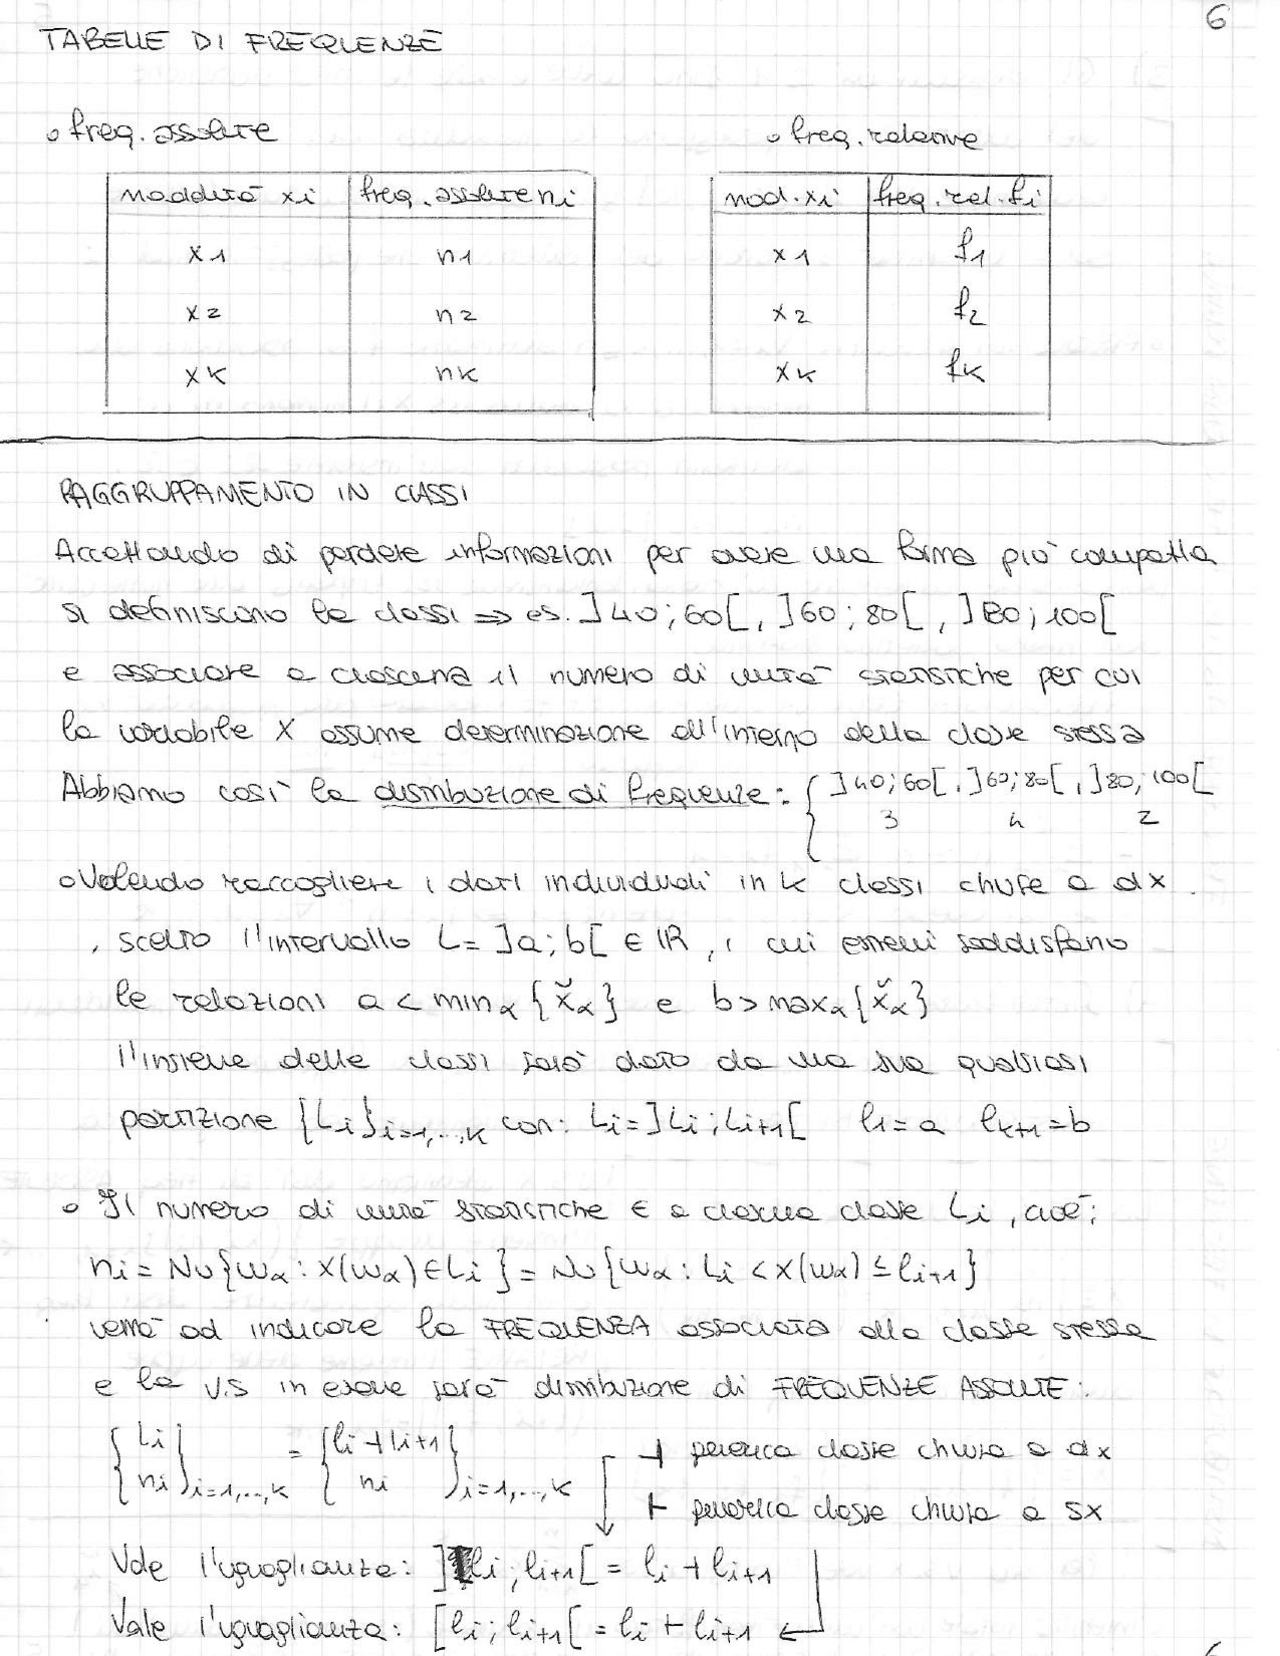 6
TABELLE DI FREQUENZE
o freq. assolute
o freq. relative
modalità xi | freq. assolute ni
x1 | n1
x2 | n2
xK | nK
mod. xi | freq. rel. fi
x1 | f1
x2 | f2
xK | fK
RAGGRUPPAMENTO IN CLASSI
Accettando di perdere informazioni per avere una forma più compatta
si definiscono le classi => es. ]40;60[, ]60;80[, ]80;100[
e associare a ciascuna il numero di unità statistiche per cui
la variabile X assume determinazione all'interno della classe stessa
Abbiamo così la distribuzione di frequenze: { ]40;60[, ]60;80[, ]80;100[
3 4 2
o Volendo raccogliere i dati individuali in k classi chiuse a dx.
, scelto l'intervallo L= ]a;b[ ∈ IR, i cui estremi soddisfano
le relazioni a < minα {x̌α} e b > maxα {x̌α}
l'insieme delle classi sarà dato da una sua qualsiasi
partizione {Li}i=1,..,K con: Li= ]Li;Li+1[ l1=a lk+1=b
o Il numero di unità statistiche ∈ a ciascuna classe Li, cioè;
ni = Nu{ωα: X(ωα) ∈ Li} = Nu{ωα: Li < X(ωα) ≤ li+1}
verrà ad indicare la FREQUENZA associata alla classe stessa
e la V.S in esame sarà distribuzione di FREQUENZE ASSOLUTE:
{Li ni}i=1,..,K = {li ⊣ li+1 ni}i=1,..,K
⊣ generica classe chiusa a dx
⊢ generica classe chiusa a sx
Vale l'uguaglianza: ]li; li+1[ = li ⊣ li+1
Vale l'uguaglianza: [li; li+1[ = li ⊢ li+1